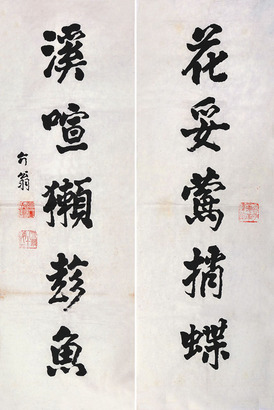 花妥鶯捎蝶
溪喧獺趁魚
翁